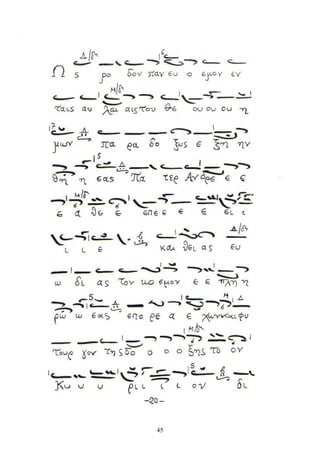 Ω ς ρο δον παν ευ ο σμον εν
ταις αυ λαι αις του Θε ου ου ου η
μων Πα ρα δο ξως ε ξη ην
θη η σας Πα τερ Ανδρε ε ε
ε α θε ε ε ε ε
ι ι ε και θει ας ευ
ω δι ας τον κο σμον ε ε πλη η
ρω ω σας ε
τουρ γον της δο ο ο ο ξης το ον
Κω υ υ ρι ι ι ι ον δι
-20-
45